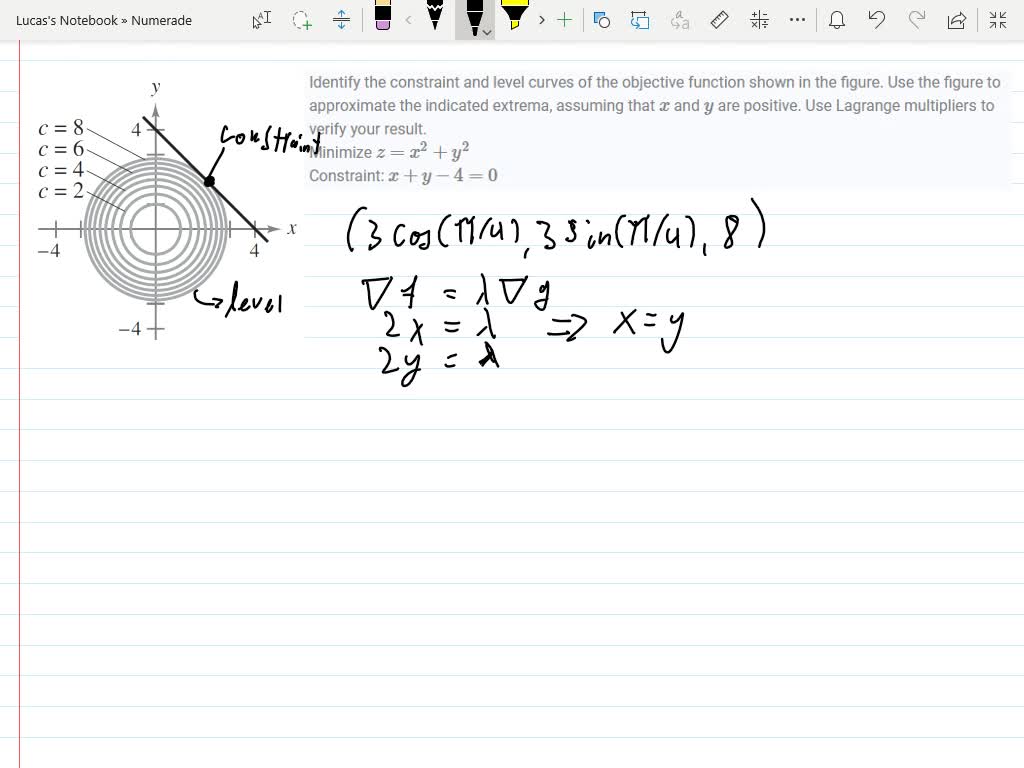 Lucas's Notebook » Numerade
Identify the constraint and level curves of the objective function shown in the figure. Use the figure to
approximate the indicated extrema, assuming that x and y are positive. Use Lagrange multipliers to
verify your result.
Minimize z = x² + y²
Constraint: x + y − 4 = 0
y
c = 8
c = 6
c = 4
c = 2
4
constraint
x
−4
4
−4
level
(3 cos(π/4), 3 sin(π/4), 8)
∇f = λ∇g
2x = λ ⇒ x = y
2y = λ